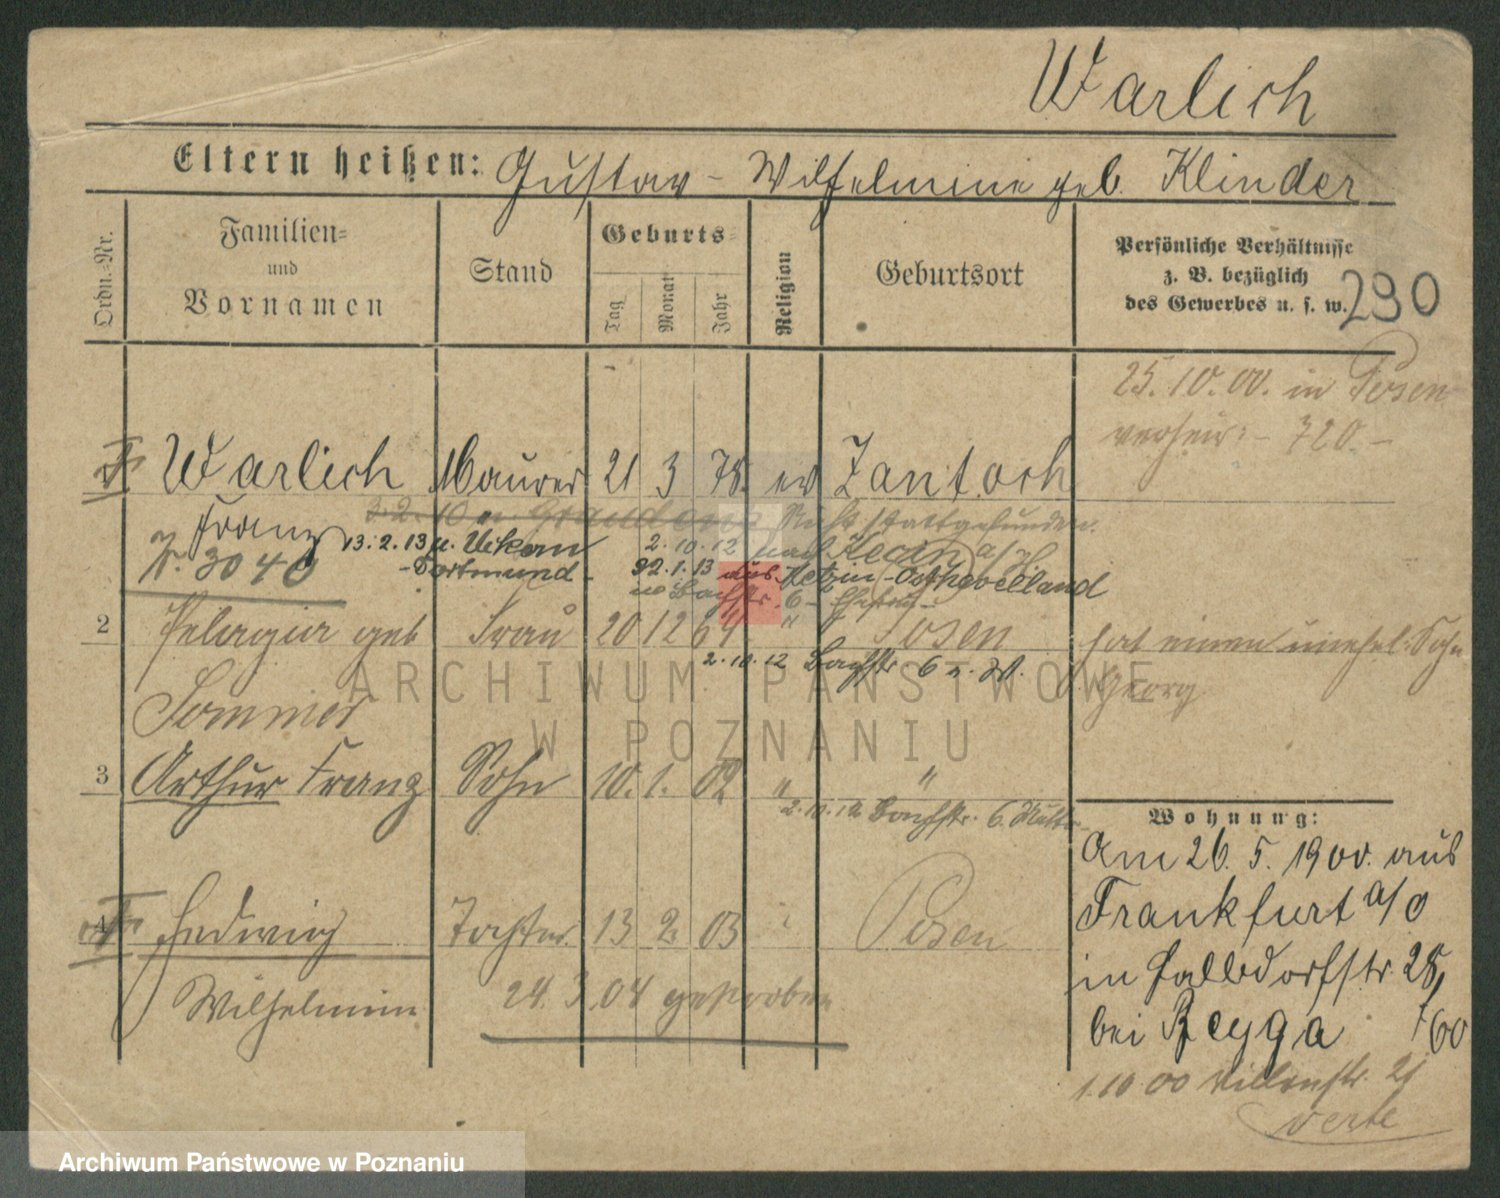 Warlich
Eltern heißen: Gustav - Wilhelmine geb. Klinder
Ordn.-Nr.
Familien- und Vornamen
Stand
Geburts-
Tag
Monat
Jahr
Religion
Geburtsort
Persönliche Verhältnisse
z. B. bezüglich
des Gewerbes u. s. w.
290
25.10.00. in Posen
verheir: - 720. -
Warlich Maurer 21 3 78. ev Zantoch
2.2.10 n. Graudenz Nicht stattgefunden.
Franz
13.2.13 n.
2.10.12 nach
N. 3040
- Dortmund -
22.1.13 aus Ketzin - Osthavelland
Bachstr. 6 - Ehefrau -
2 Pelagia geb Frau 20 12 64 " Posen
hat einen unehel. Sohn
Georg
2.10.12 Bachstr. 6 n. W.
Sommer
3 Arthur Franz Sohn 10. 1. 02 " "
2.10.12 Bachstr. 6. Mutter
4 Hedwig Tochter 13 2. 03 " Posen
Wilhelmine 24.3.04 gestorben
Wohnung:
Am 26.5.1900. aus
Frankfurt a/O
in Halbdorfstr. 28,
bei Reyga 760
1.10 00 21
verte
ARCHIWUM PAŃSTWOWE
W POZNANIU
Archiwum Państwowe w Poznaniu